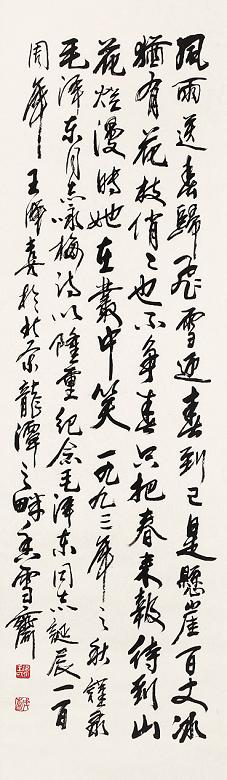 風雨送春歸飛雪迎春到已是懸崖百丈冰
猶有花枝俏俏也不争春只把春来報待到山
花爛漫時她在叢中笑一九九三年之秋謹录
毛泽东同志咏梅詩以隆重纪念毛泽东同志誕辰一百
周年王泽喜於北京龍潭之畔香雪齋